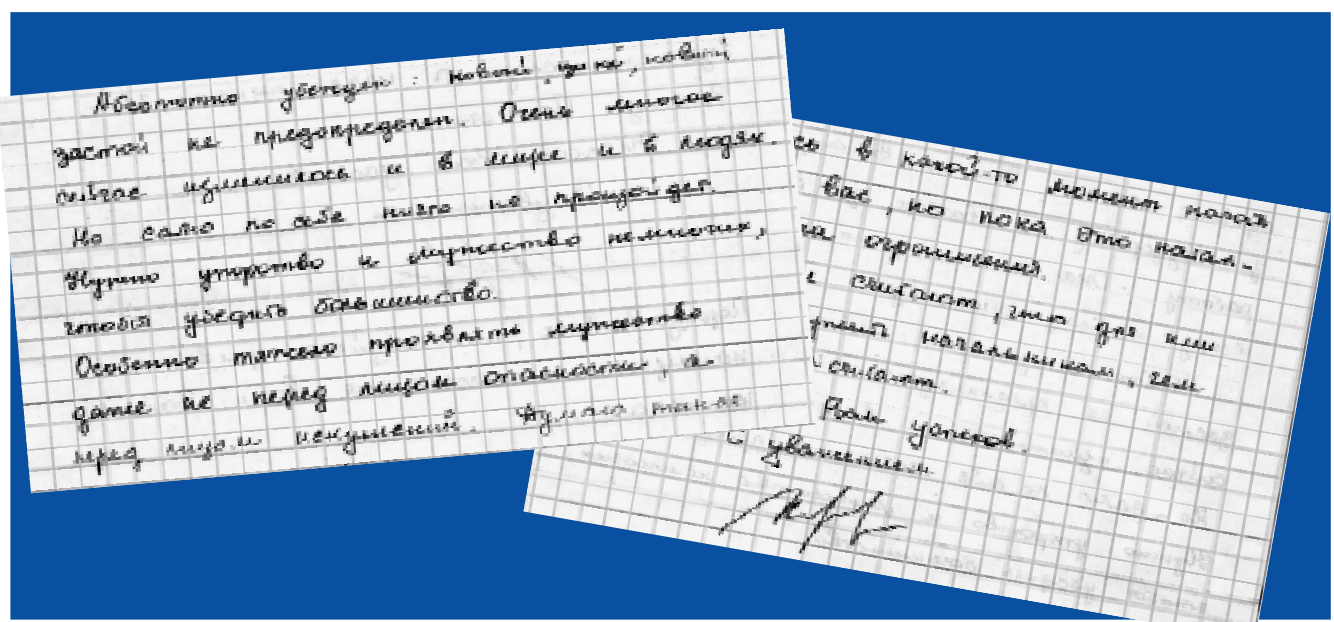 Абсолютно убежден: новый цикл, новый
застой не предопределен. Очень многое
сейчас изменилось и в мире и в людях.
Но само по себе ничего не произойдет.
Нужно упорство и мужество немногих,
чтобы убедить большинство.
Особенно тяжело проявлять мужество
даже не перед лицом опасности, а
перед лицом искушений. Думаю такое
сь в какой-то момент
вас, но пока это
ограничения.
считают, что для
начальником, чем
считают.
Вам успехов.
С уважением